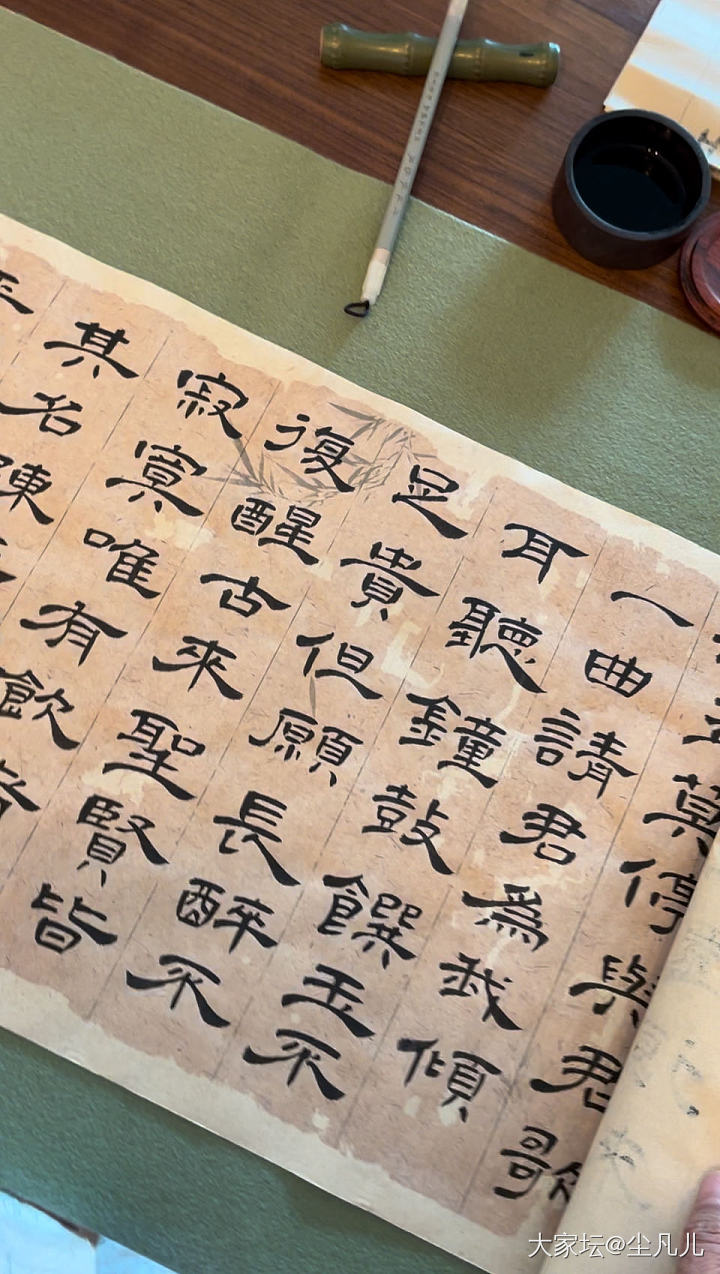 莫停與君歌
一曲請君為我傾
耳聽鐘鼓饌玉不
足貴但願長醉不
復醒古來聖賢皆
寂寞唯有飲者
其名陳
平
大家坛@尘凡儿